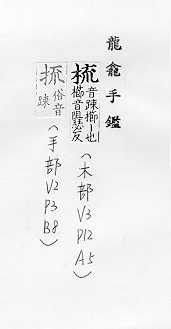 龍龕手鑑
梳
音踈櫛｜也
櫛音阻瑟反
(木部V3
P12
A5)
㧌
俗音
踈
(手部V2
P3
B8)